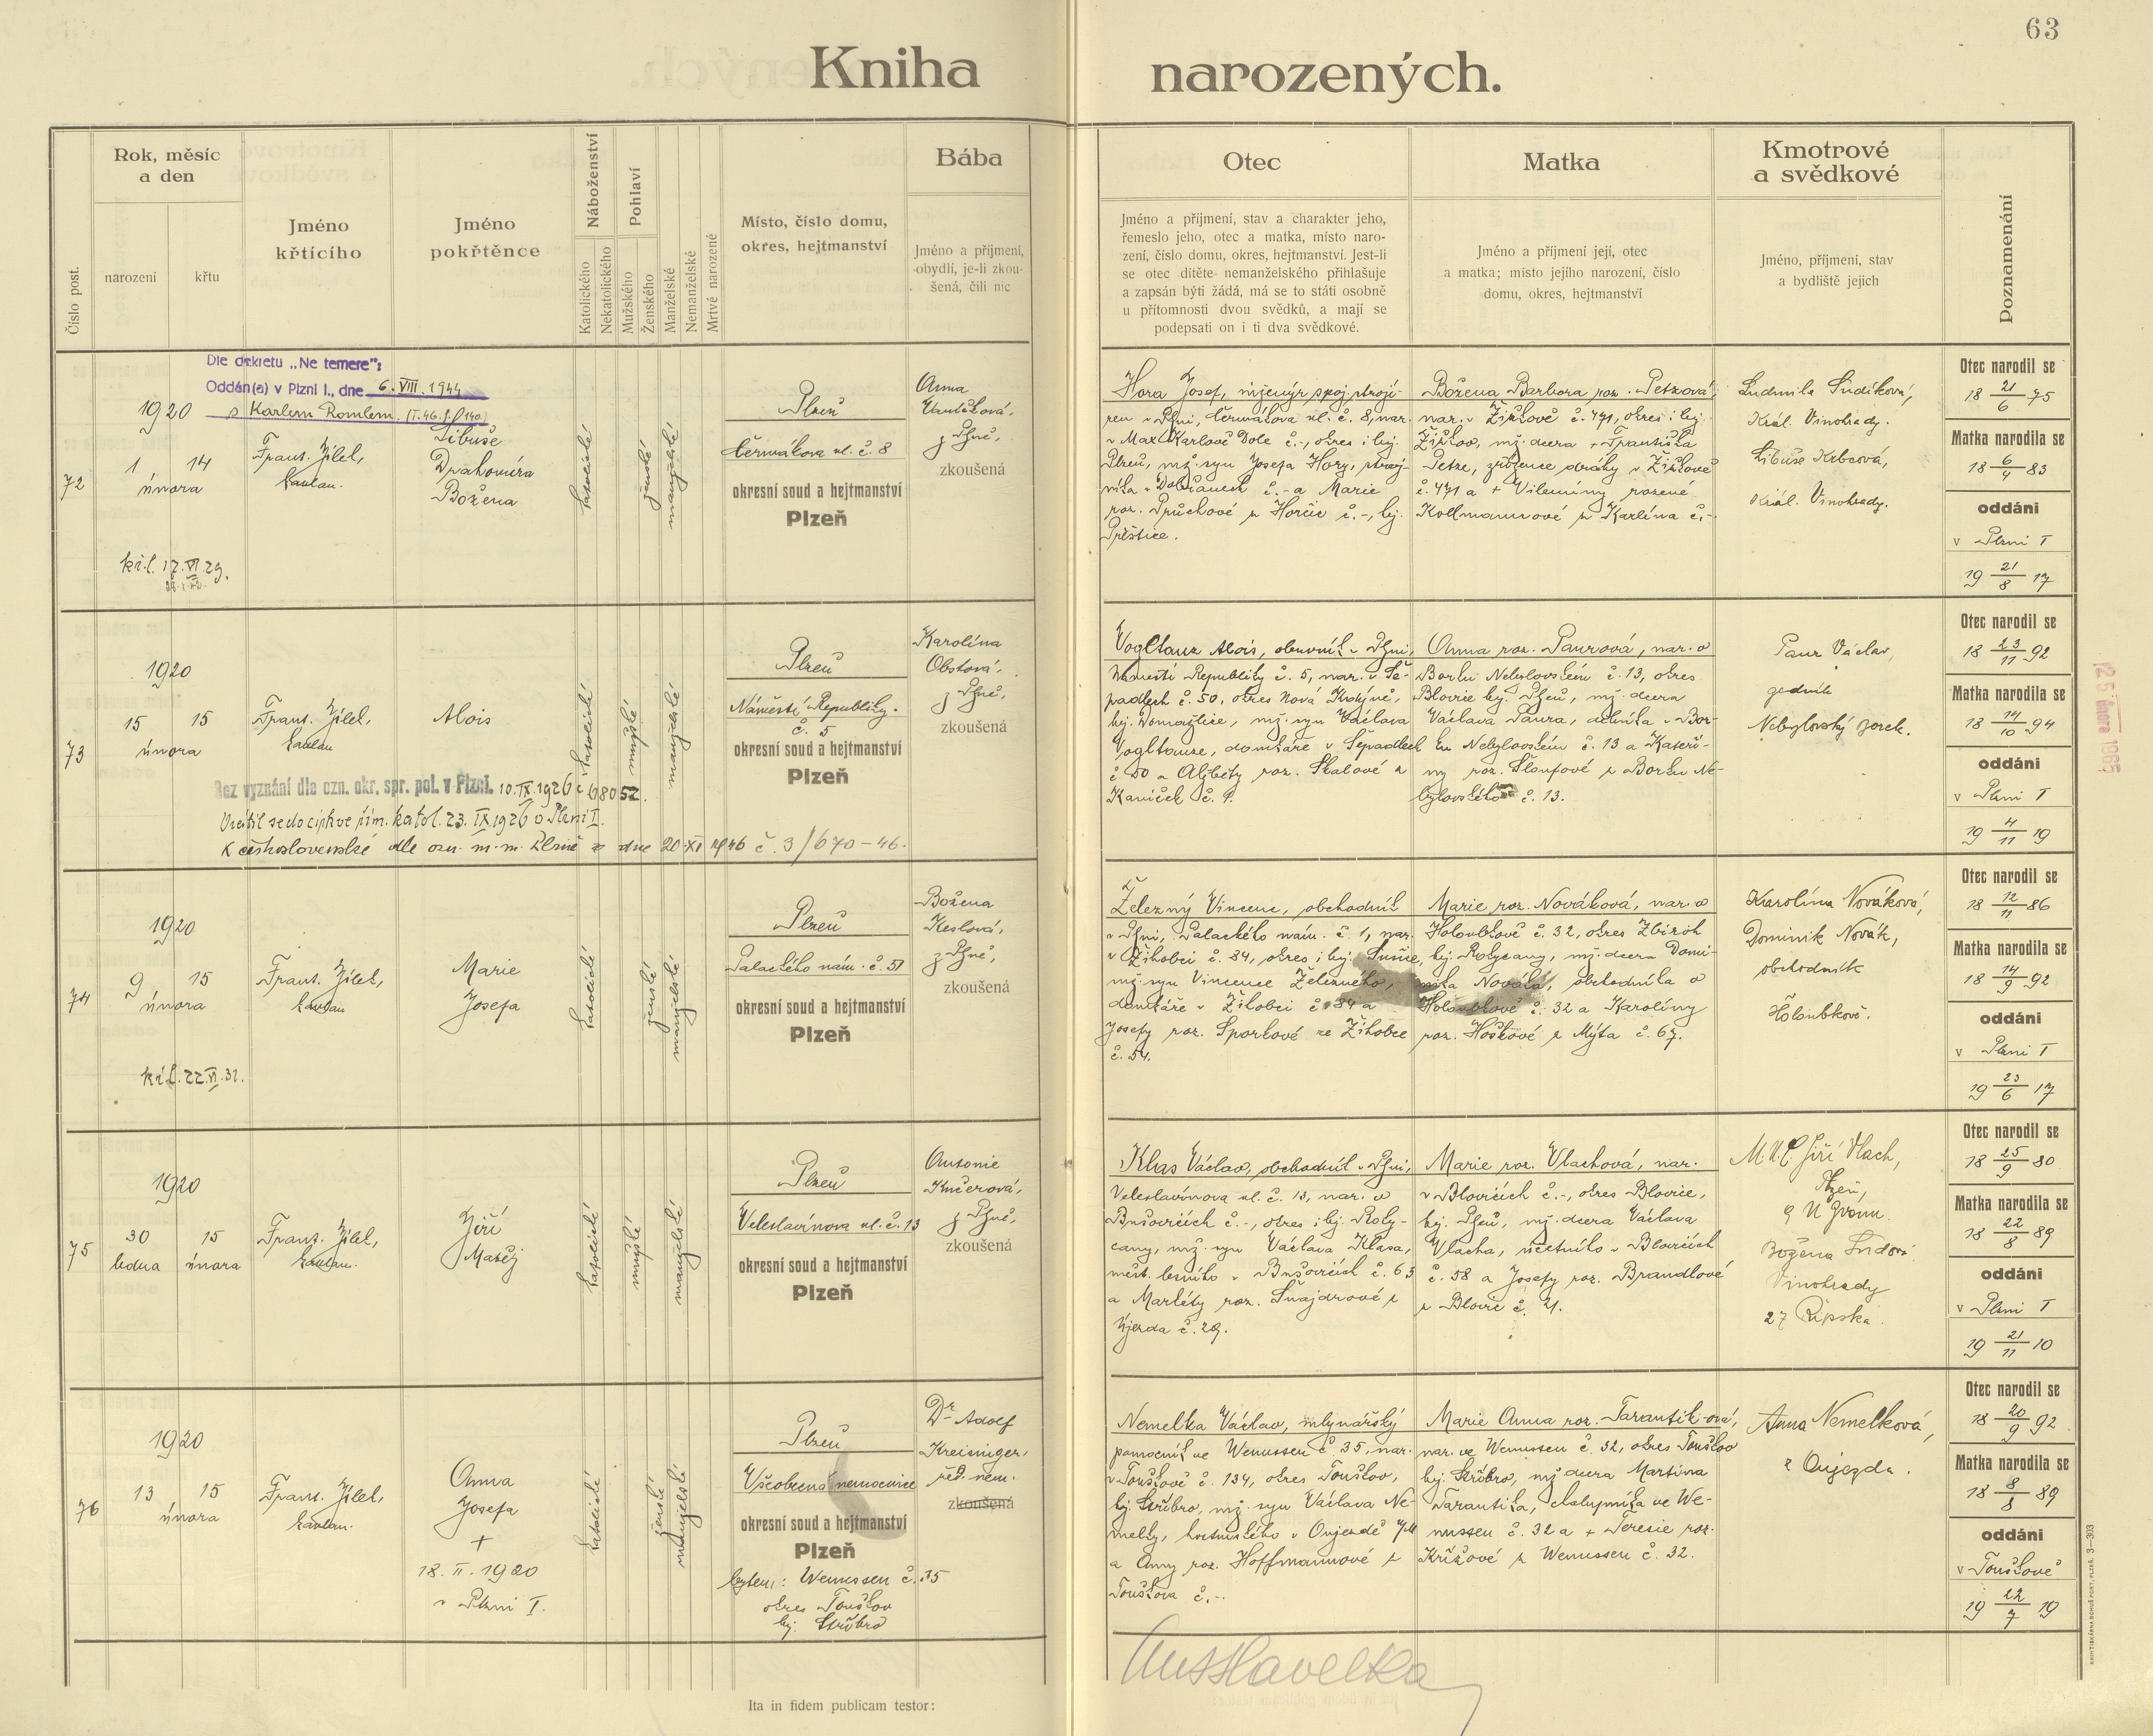 63
Kniha narozených.
Číslo post.
Rok, měsíc
a den
narození
křtu
Jméno
křtícího
Jméno
pokřtěnce
Náboženství
Katolického
Nekatolického
Pohlaví
Mužského
Ženského
Manželské
Nemanželské
Mrtvé narozené
Místo, číslo domu,
okres, hejtmanství
Bába
Jméno a příjmení,
obydlí, je-li zkou-
šená, čili nic
Otec
Jméno a příjmení, stav a charakter jeho,
řemeslo jeho, otec a matka, místo naro-
zení, číslo domu, okres, hejtmanství. Jest-li
se otec dítěte nemanželského přihlašuje
a zapsán býti žádá, má se to státi osobně
u přítomnosti dvou svědků, a mají se
podepsati on i ti dva svědkové.
Matka
Jméno a příjmení její, otec
a matka; místo jejího narození, číslo
domu, okres, hejtmanství
Kmotrové
a svědkové
Jméno, příjmení, stav
a bydliště jejich
Poznamenání
Dle dekretu „Ne temere":
Oddán(a) v Plzni I., dne 6. VIII. 1944
s Karlem Romlem.
72
1920
1 14
února
Frant. Jílek,
kaplan.
Libuše
Drahomíra
Božena
katolické
ženské
manželské
Plzeň
Čermákova ul. č. 8
okresní soud a hejtmanství
Plzeň
Anna
z Plzně,
zkoušená
kř. l. 17. VI. 29.
Hora Josef, inženýr spoj. strojí-
ren v Plzni, Čermákova ul. č. 8, nar.
v Max. Karlově Dole č. -, okres i hej.
Plzeň, mž. syn Josefa Hory, stroj-
níka v Dobřanech č. - a Marie
roz. Průchové z Horčic č. -, hej.
Přeštice.
Božena Barbora roz. Petzová,
nar. v Žižkově č. 471, okres i hej.
Žižkov, mž. dcera + Františka
Petze, zřízence dráhy v Žižkově
č. 471 a + Vilemíny rozené
Kollmannové z Karlína č. -
Ludmila Sudíková,
Král. Vinohrady.
Libuše Krbcová,
Král. Vinohrady.
Otec narodil se
18 21/6 75
Matka narodila se
18 6/4 83
oddáni
v Plzni I
19 21/8 17
73
1920
15 15
února
Frant. Jílek,
kaplan
Alois
katolické
mužské
manželské
Plzeň
Náměstí Republiky.
č. 5
okresní soud a hejtmanství
Plzeň
Karolína
Obstová,
z Plzně,
zkoušená
Bez vyznání dle ozn. okr. spr. pol. v Plzni. 10. IX. 1926 č. 68052.
Vrátil se do církve řím. katol. 23. IX 1926 v Plzni I.
K československé dle ozn. m. m. Plzně z dne 20 XI 1946 č. 3/670-46.
Vogltanz Alois, obuvník v Plzni,
Náměstí Republiky č. 5, nar. v Še-
padlech č. 50, okres Nová Kdýně,
hej. Domažlice, mž. syn Václava
Vogltanze, domkáře v Šepadlech
č. 50 a Alžběty roz. Skalové z
Kaniček č. 9.
Anna roz. Paurová, nar. v
Borku Nebylovském č. 13, okres
Blovice hej. Plzeň, mž. dcera
Václava Paura, dělníka v Bor-
ku Nebylovském č. 13 a Kateři-
ny roz. Sloufové z Borku Ne-
bylovského č. 13.
Paur Václav,
Nebylovský Borek.
Otec narodil se
18 23/11 92
Matka narodila se
18 14/10 94
oddáni
v Plzni I
19 4/11 19
25 února 1965
74
1920
9 15
února
Frant. Jílek,
kaplan
Marie
Josefa
katolické
ženské
manželské
Plzeň
Palackého nám. č. 51
okresní soud a hejtmanství
Plzeň
Božena
Keslová,
z Plzně,
zkoušená
kř. l. 22. VI. 32.
Železný Vincenc, obchodník
v Plzni, Palackého nám. č. 1, nar.
v Žihobci č. 84, okres i hej. Sušice,
mž. syn Vincence Železného,
domkáře v Žihobci č. 84 a
Josefy roz. Sporkové ze Žihobce
č. 54.
Marie roz. Nováková, nar. v
Holoubkově č. 32, okres Zbiroh
hej. Rokycany, mž. dcera Domi-
nika Nováka, obchodníka v
Holoubkově č. 32 a Karolíny
roz. Hoškové z Mýta č. 67.
Karolína Nováková,
Dominik Novák,
obchodník
Holoubkově.
Otec narodil se
18 12/11 86
Matka narodila se
18 14/9 92
oddáni
v Plzni I
19 23/6 17
75
1920
30 15
ledna února
Frant. Jílek,
kaplan.
Jiří
Matěj
katolické
mužské
manželské
Plzeň
Veleslavínova ul. č. 13
okresní soud a hejtmanství
Plzeň
Antonie
Kučerová,
z Plzně,
zkoušená
Klas Václav, obchodník v Plzni,
Veleslavínova ul. č. 13, nar. v
Bušovicích č. -, okres i hej. Roky-
cany, mž. syn Václava Klasa,
měst. lesního v Bušovicích č. 63
a Markéty roz. Šnajdrové z
Újezda č. 29.
Marie roz. Vlachová, nar.
v Blovicích č. -, okres Blovice,
hej. Plzeň, mž. dcera Václava
Vlacha, účetního v Blovicích
č. 58 a Josefy roz. Brandlové
z Blovic č. 21.
M.U.C Jiří Vlach,
Plzeň,
9 U Zvonu.
Božena
Vinohrady
27 Řipská.
Otec narodil se
18 25/9 80
Matka narodila se
18 22/8 89
oddáni
v Plzni I
19 21/11 10
76
1920
13 15
února
Frant. Jílek,
kaplan.
Anna
Josefa
+
18. II. 1920
v Plzni I.
katolické
ženské
manželské
Plzeň
Všeobecná nemocnice
okresní soud a hejtmanství
Plzeň
bytem: Wenussen č. 35
okres Touškov
hej. Stříbro
Dr Adolf
Kreisinger,
řed. nem.
zkoušená
Nemelka Václav, mlynářský
pomocník ve Wenussen č. 35, nar.
v Touškově č. 134, okres Touškov,
hej. Stříbro, mž. syn Václava Ne-
melky, hostinského v Oujezdě
a Anny roz. Hoffmannové z
Touškova č. -.
Marie Anna roz. Tarantíková,
nar. ve Wenussen č. 32, okres Touškov
hej. Stříbro, mž. dcera Martina
Tarantíka, chalupníka ve We-
nussen č. 32 a + Teresie roz.
Křížové z Wenussen č. 32.
Anna Nemelková,
z Oujezda.
Otec narodil se
18 20/9 92
Matka narodila se
18 8/8 89
oddáni
v Touškově
19 22/7 19
Ita in fidem publicam testor:
KNIHTISKÁRNA BOHUŠ PORT, PLZEŇ. 3—303